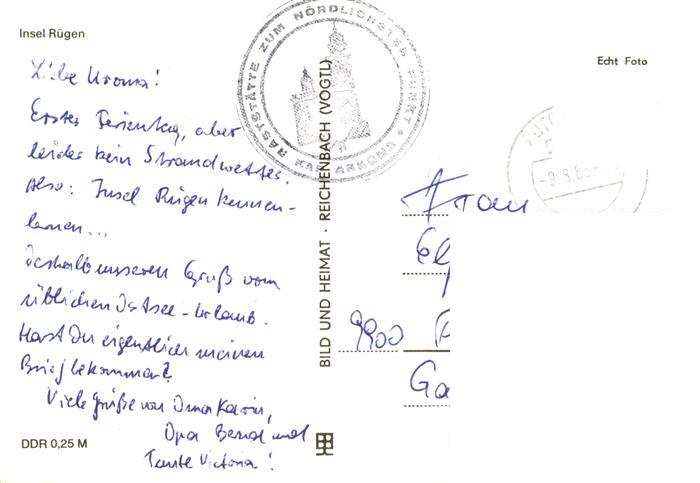 Insel Rügen
Liebe Uroma!
Erster Ferientag, aber
leider kein Strandwetter.
Also: Insel Rügen kennen-
lernen...
Deshalb unseren Gruß vom
üblichen Ostsee-Urlaub.
Hast Du eigentlich meinen
Brief bekommen?
Viele Grüße von Oma Karin,
Opa Bernd und
Tante Victoria!
DDR 0,25 M
RASTSTÄTTE ZUM NÖRDLICHSTEN PUNKT
KAP ARKONA
BILD UND HEIMAT · REICHENBACH (VOGTL)
Echt Foto
-9.8.85
Frau
9900